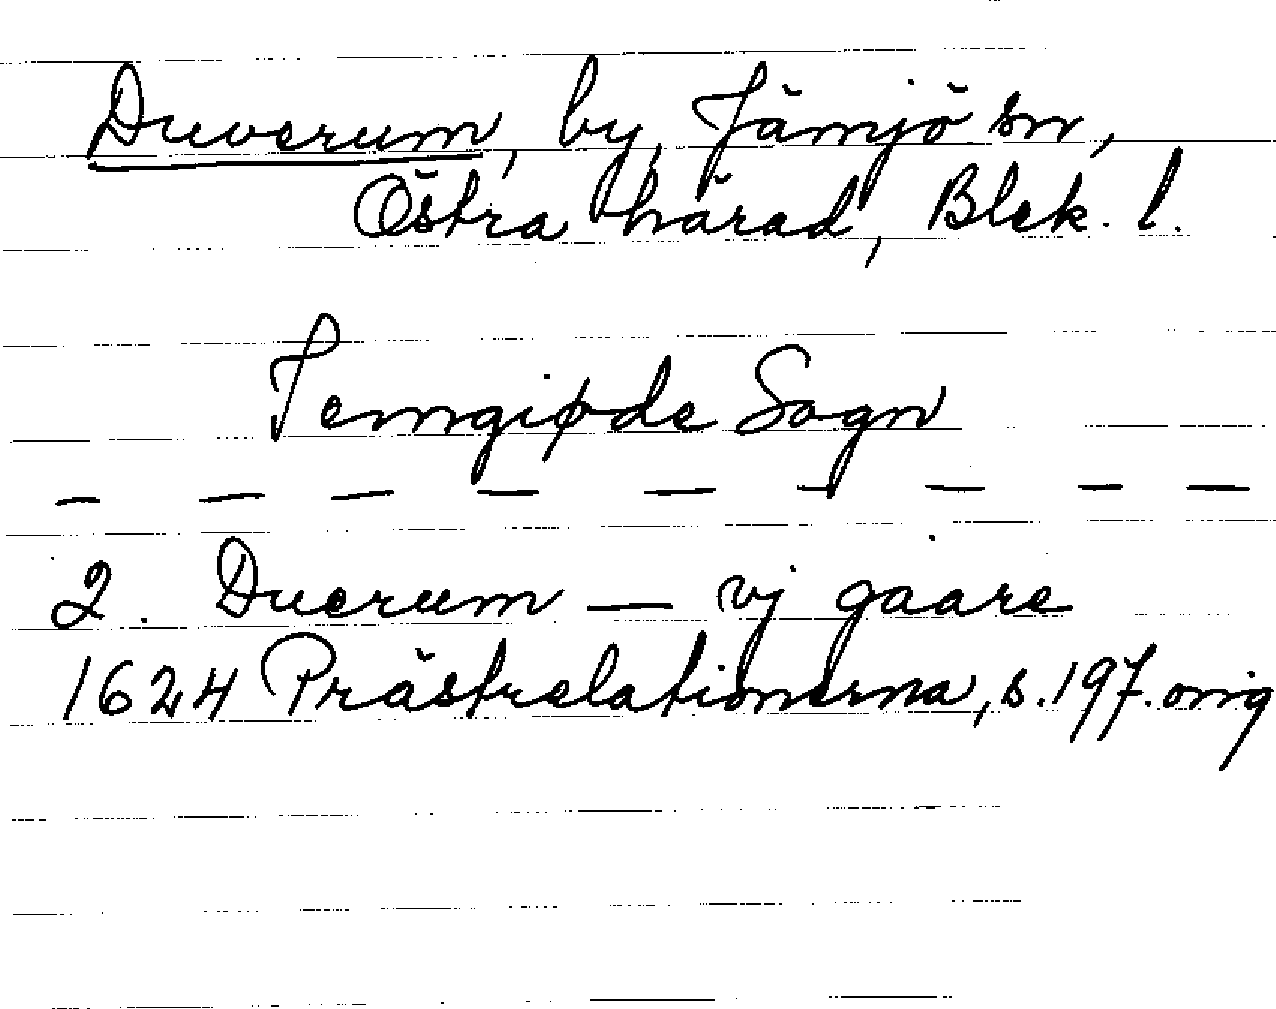 Duverum, by, Jämjö sn,
Östra härad, Blek. l.
Jemgiøde Sogn
— — — — — — — — —
2. Duerum — vj gaare
1624 Prästrelationerna, s. 197. orig